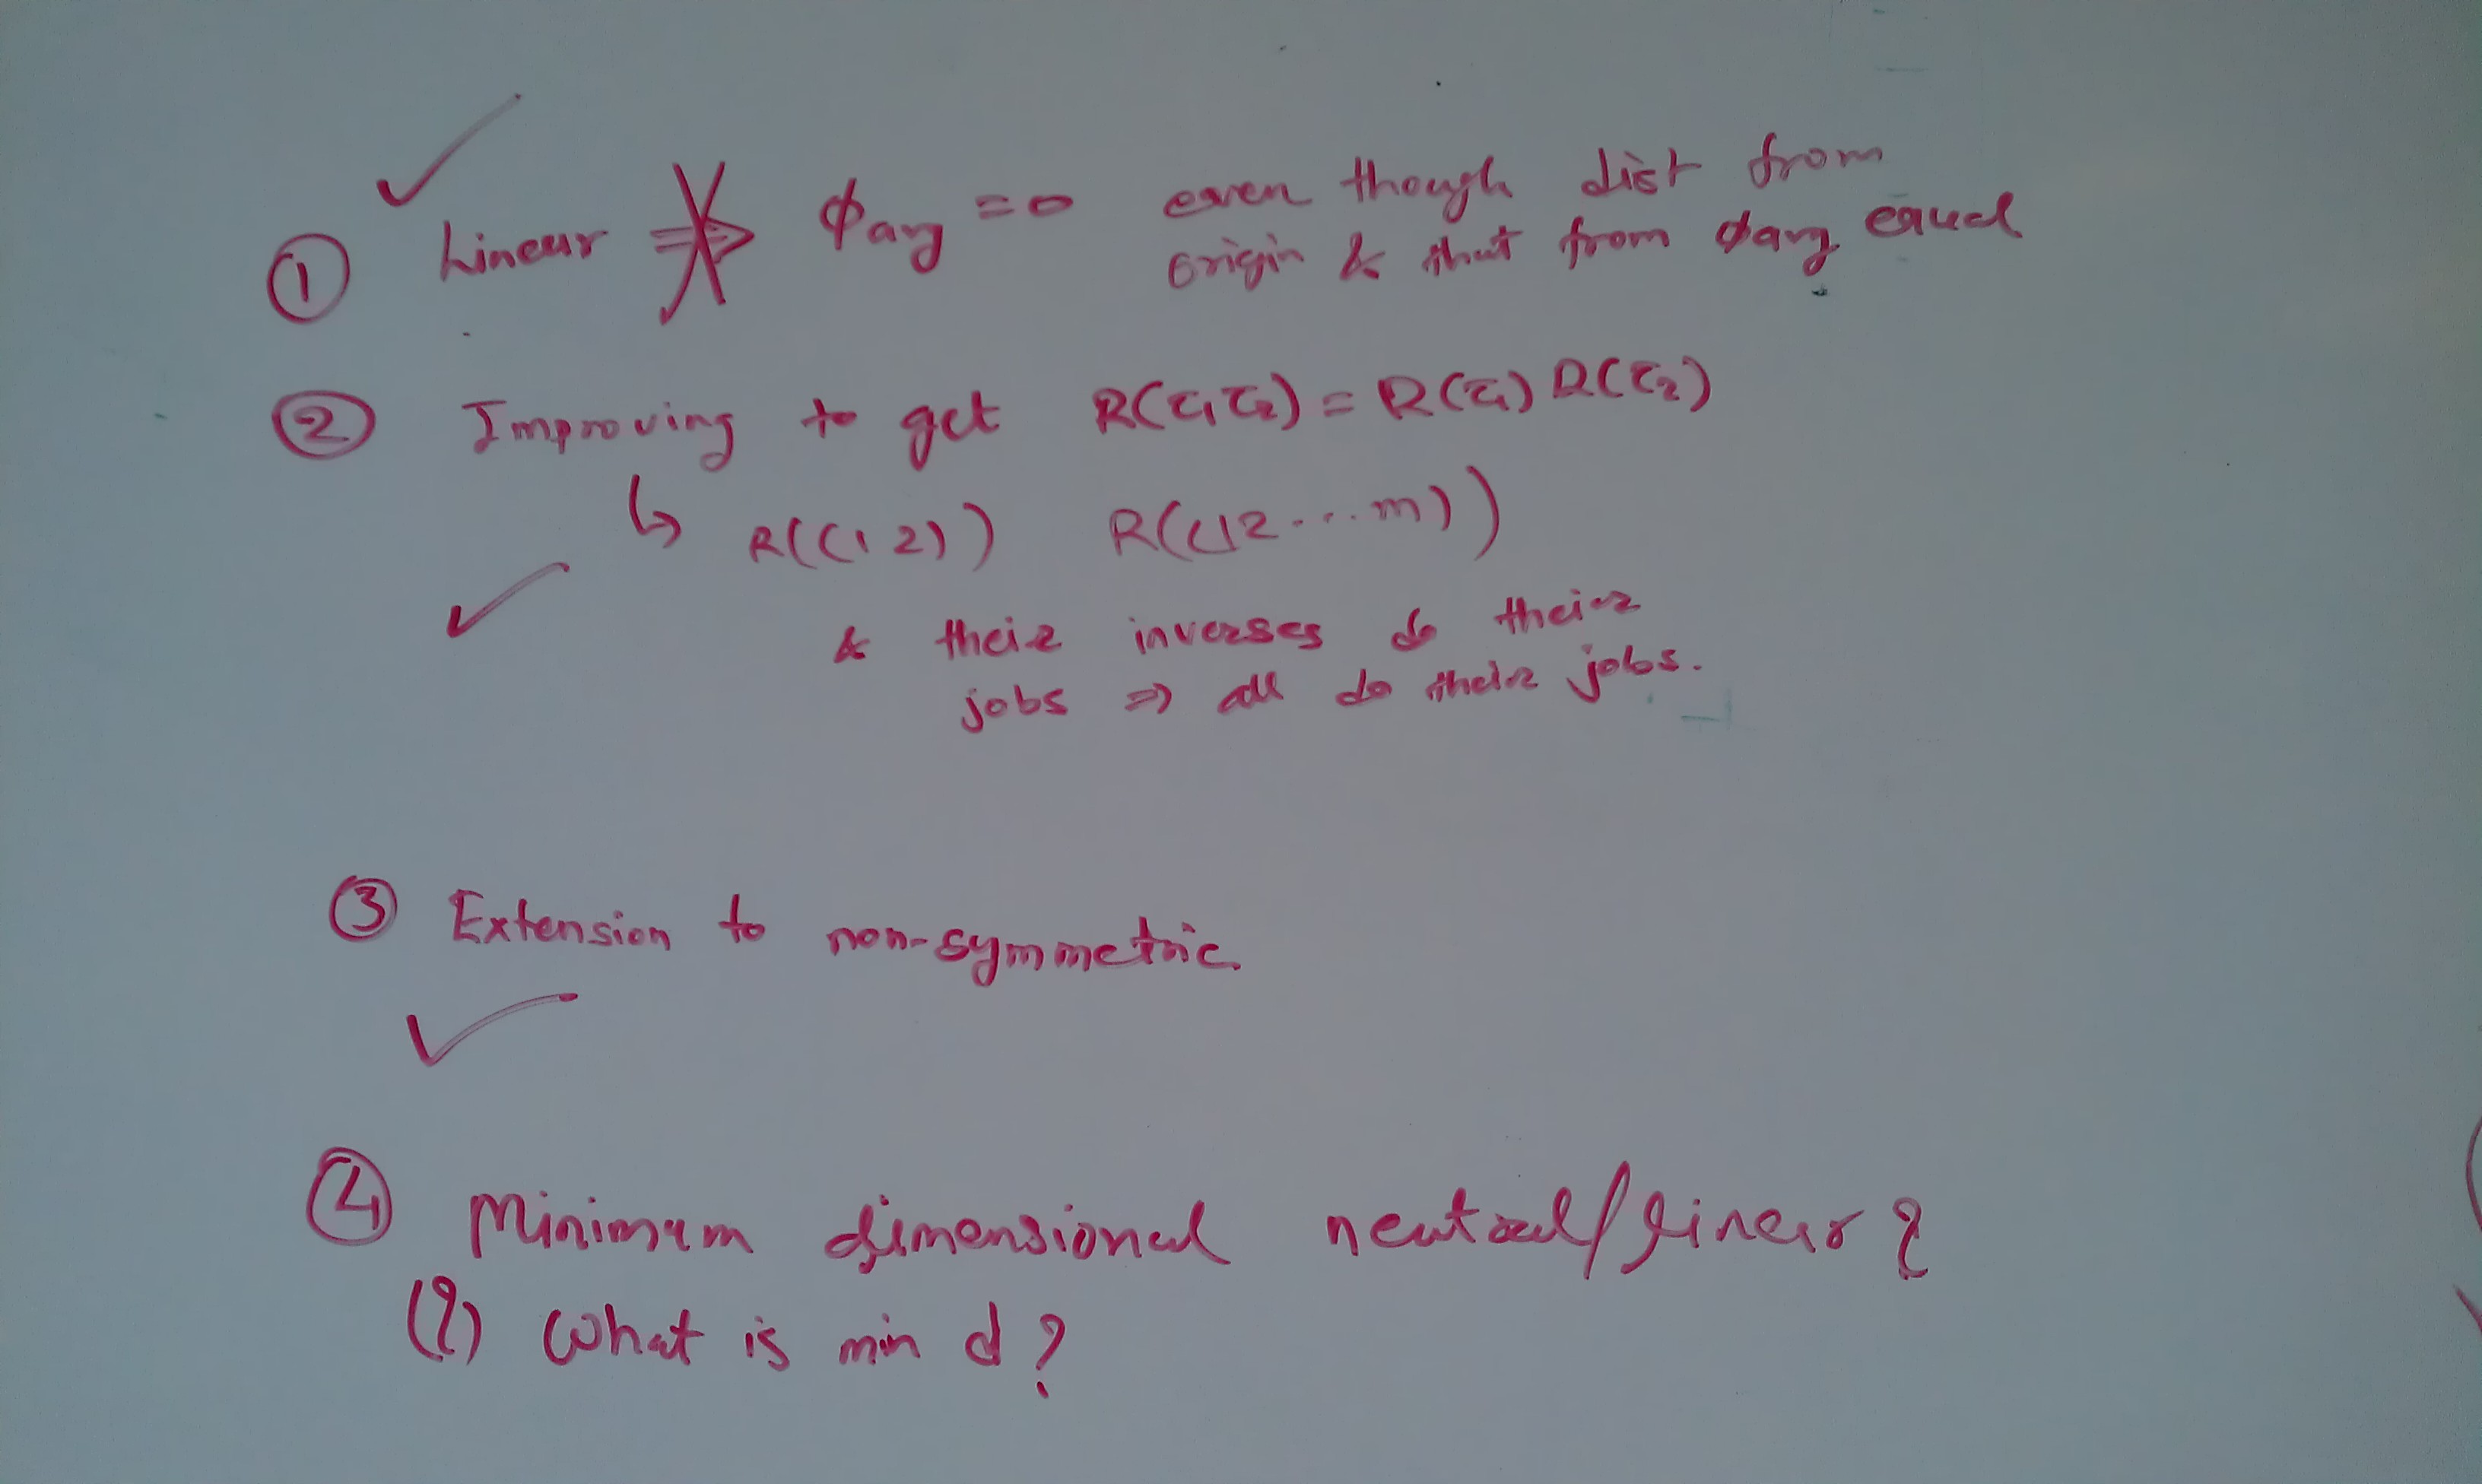 ① Linear ⇏ ϕavg = 0 even though dist from
origin & that from ϕavg equal
② Improving to get R(τ₁τ₂) = R(τ₁) R(τ₂)
↳ R((1 2)) R((12...m))
& their inverses do their
jobs ⇒ all do their jobs.
③ Extension to non-symmetric
④ Minimum dimensional neutral/linear?
(?) What is min d?